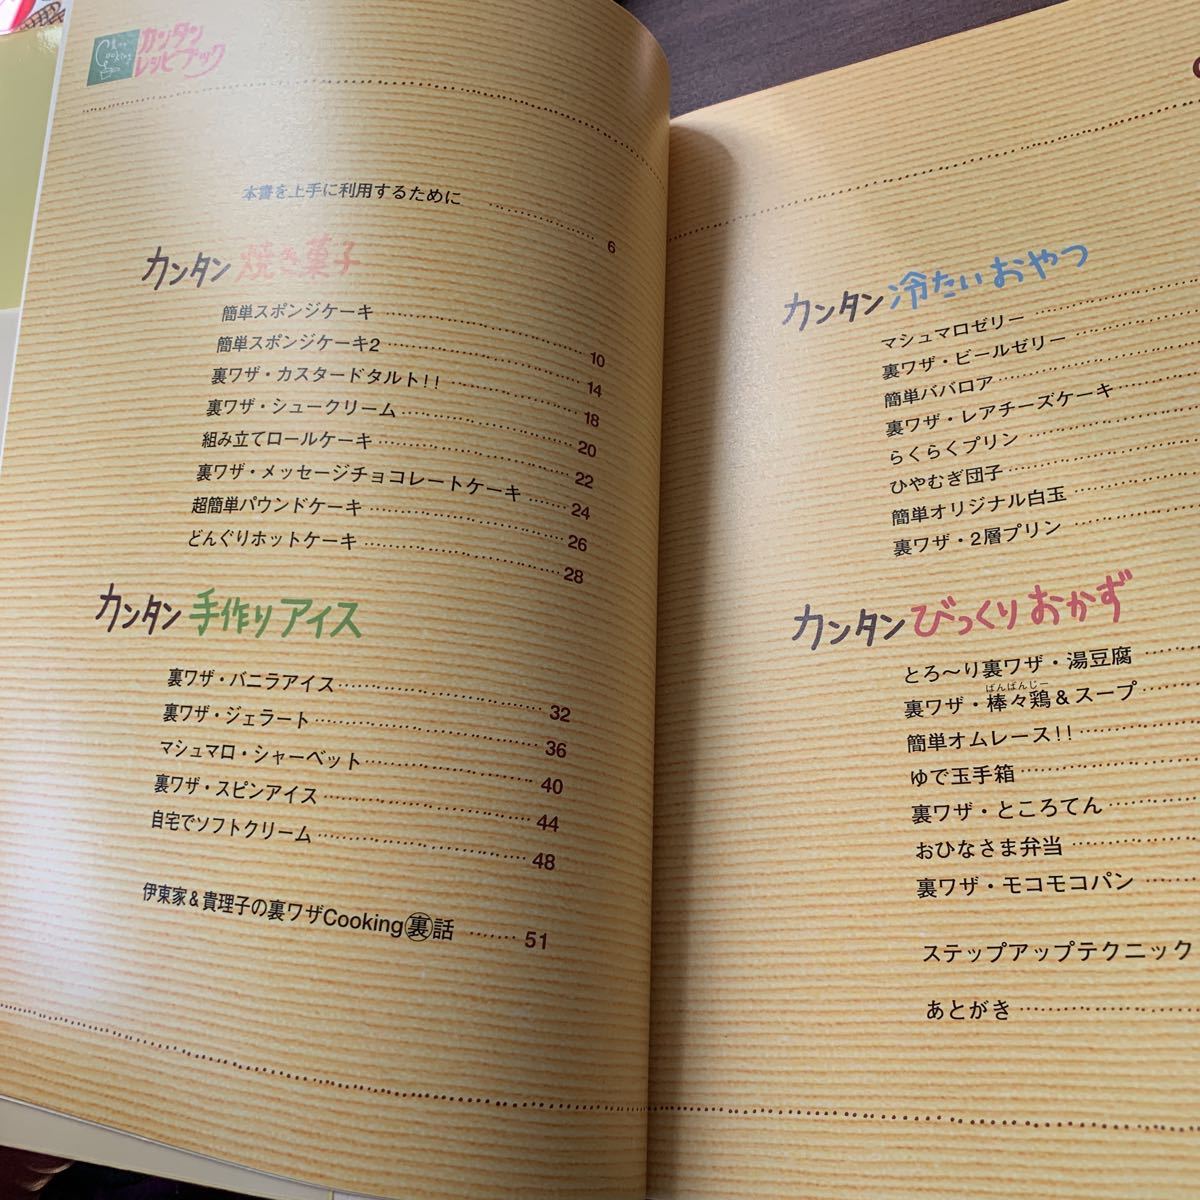 カンタン
レシピブック
本書を上手に利用するために 6
カンタン 焼き菓子
簡単スポンジケーキ 10
簡単スポンジケーキ2 14
裏ワザ・カスタードタルト!! 18
裏ワザ・シュークリーム 20
組み立てロールケーキ 22
裏ワザ・メッセージチョコレートケーキ 24
超簡単パウンドケーキ 26
どんぐりホットケーキ 28
カンタン 手作りアイス
裏ワザ・バニラアイス 32
裏ワザ・ジェラート 36
マシュマロ・シャーベット 40
裏ワザ・スピンアイス 44
自宅でソフトクリーム 48
伊東家&貴理子の裏ワザCooking㊙話 51
カンタン 冷たいおやつ
マシュマロゼリー
裏ワザ・ビールゼリー
簡単ババロア
裏ワザ・レアチーズケーキ
らくらくプリン
ひやむぎ団子
簡単オリジナル白玉
裏ワザ・2層プリン
カンタン びっくりおかず
とろ〜り裏ワザ・湯豆腐
ばんばんじー
裏ワザ・棒々鶏&スープ
簡単オムレース!!
ゆで玉手箱
裏ワザ・ところてん
おひなさま弁当
裏ワザ・モコモコパン
ステップアップテクニック
あとがき